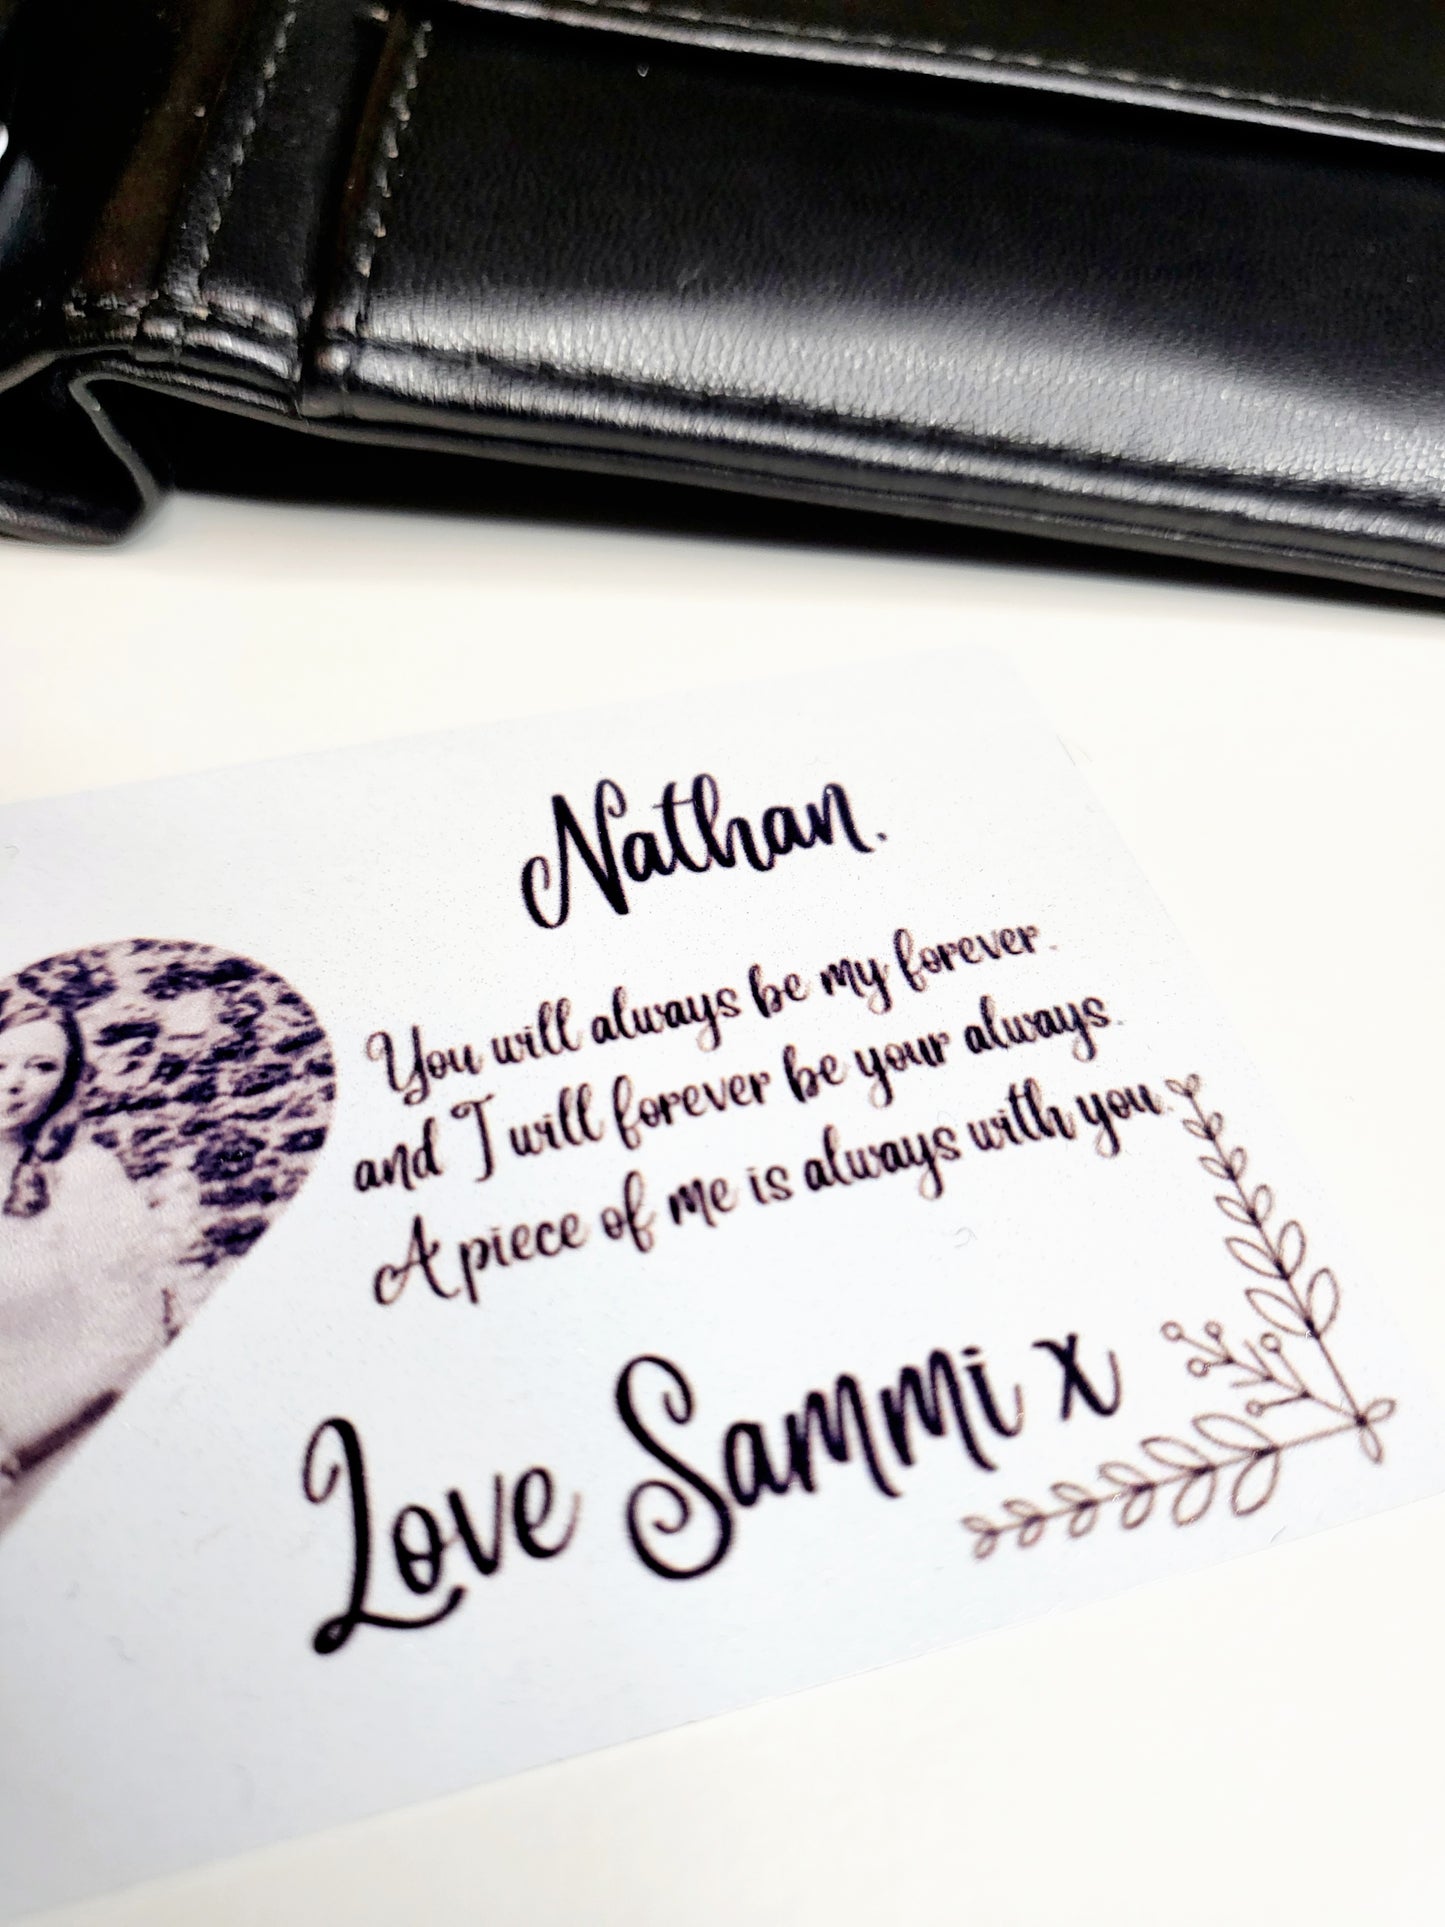 Nathan.
You will always be my forever.
and I will forever be your always.
A piece of me is always with you.
Love Sammi x